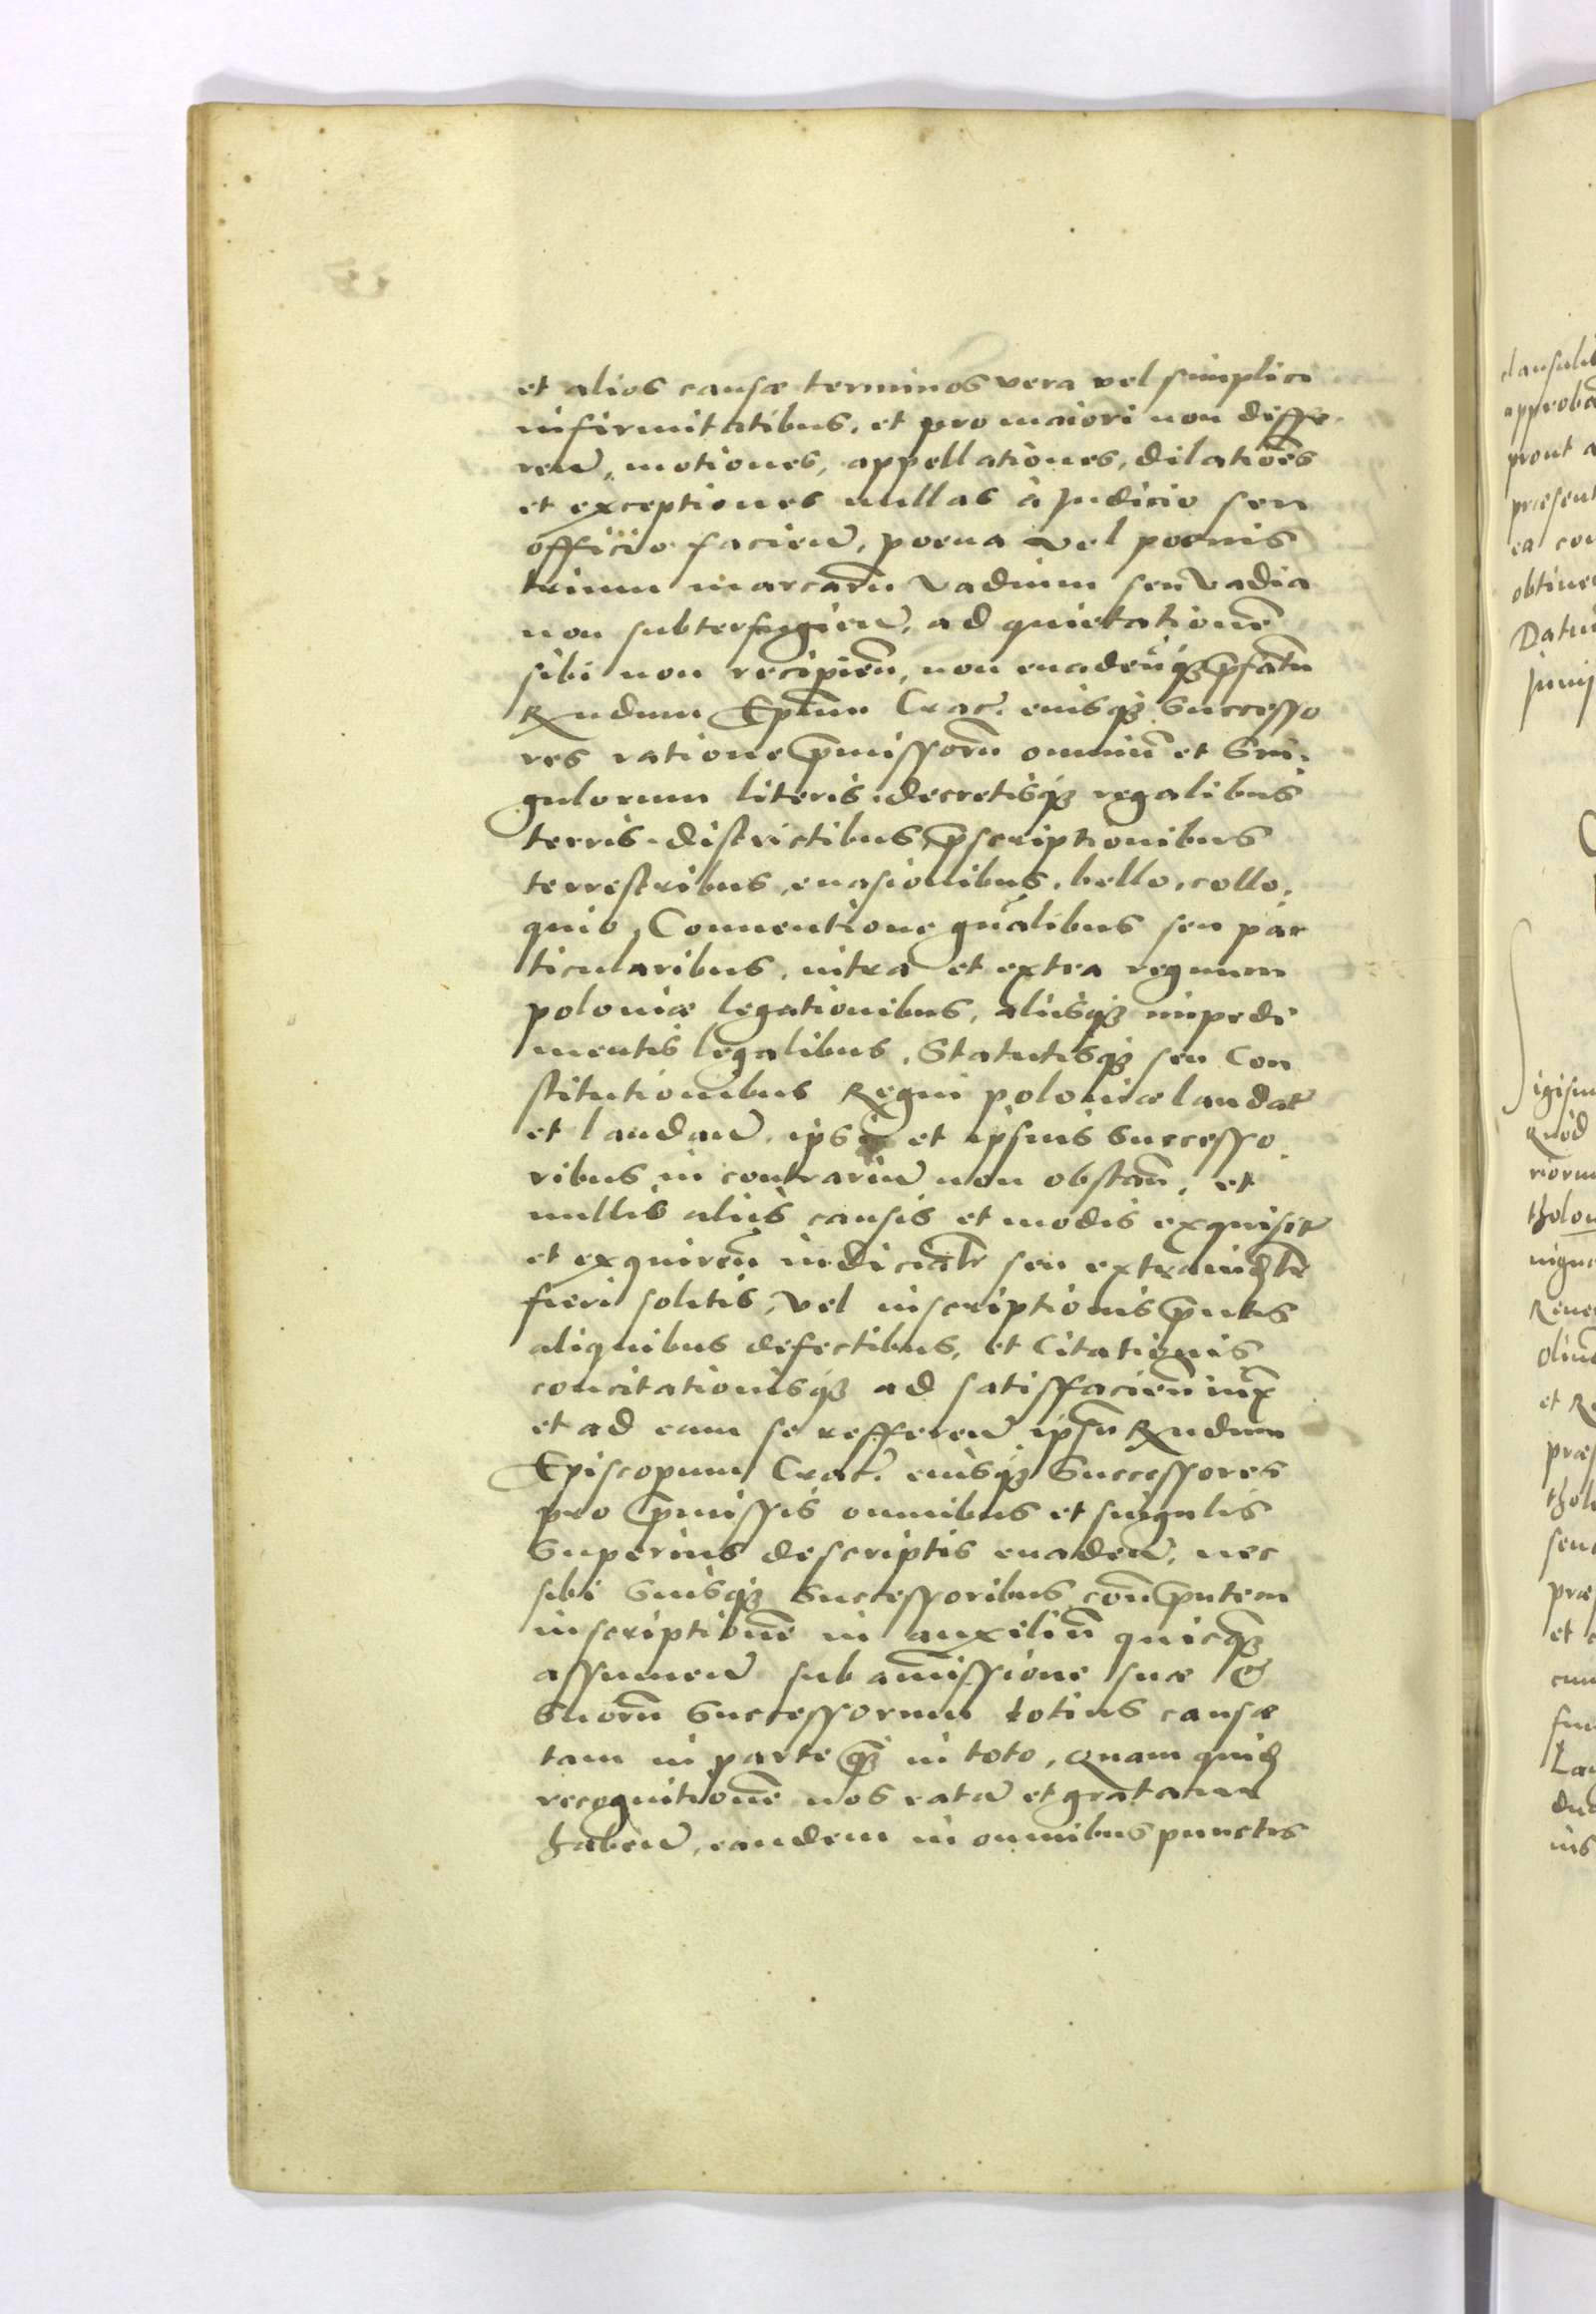 et alios causæ terminos vera vel simplici
infirmitatibus, et pro maiori non diffe-
ren̄, motiones, appellationes, dilatiōes
et exceptiones nullas à Judicio seu
officio facien̄, poena vel poenis
trium marcarū vadium seu vadia
non subterfugien̄, ad quietationē
sibi non recipien̄, non euaden̄qꝫ p̄fatū
Rndum Ep̄um Crac. eiusqꝫ Successo
res ratione p̄missorū omniū et Sin-
gulorum literis, decretisqꝫ regalibus
terris. districtibus, p̄scriptionibus
terrestribus, euasionibus, bello, collo-
quio, Conuentione gn̄alibus seu par
ticularibus, intra et extra regnum
poloniæ legationibus, alijsqꝫ impedi
mentis legalibus, Statutisqꝫ seu Con
stitutionibus Regni poloniæ laudat̄
et laudan̄, ipsi et ipsius Successo-
ribus in contrariū non obstan̄, et
nullis alijs causis et modis exquisit̄
et exquiren̄ iudicialr̄ seu extraiud̄lr̄
fieri solitis, vel inscriptionis p̄ntis
aliquibus defectibus, et Citationis
concitationisqꝫ ad satisfacien̄ iux̄
et ad eam se refferen̄ ip̄sū Rndum
Episcopum Crac. eiusqꝫ Successores
pro p̄missis omnibus et singulis
Superius descriptis euaden̄, nec
sibi Suisqꝫ Successoribus con̄ p̄ntem
inscriptionē in auxiliū quicq̄ꝫ
assumen̄ sub amissione suæ &
Suorū Successorum totius causæ
tam in parte q̄ꝫ in toto, Quam quid̄
recognitionē nos ratā et gratam
haben̄, eandem in omnibus punctis